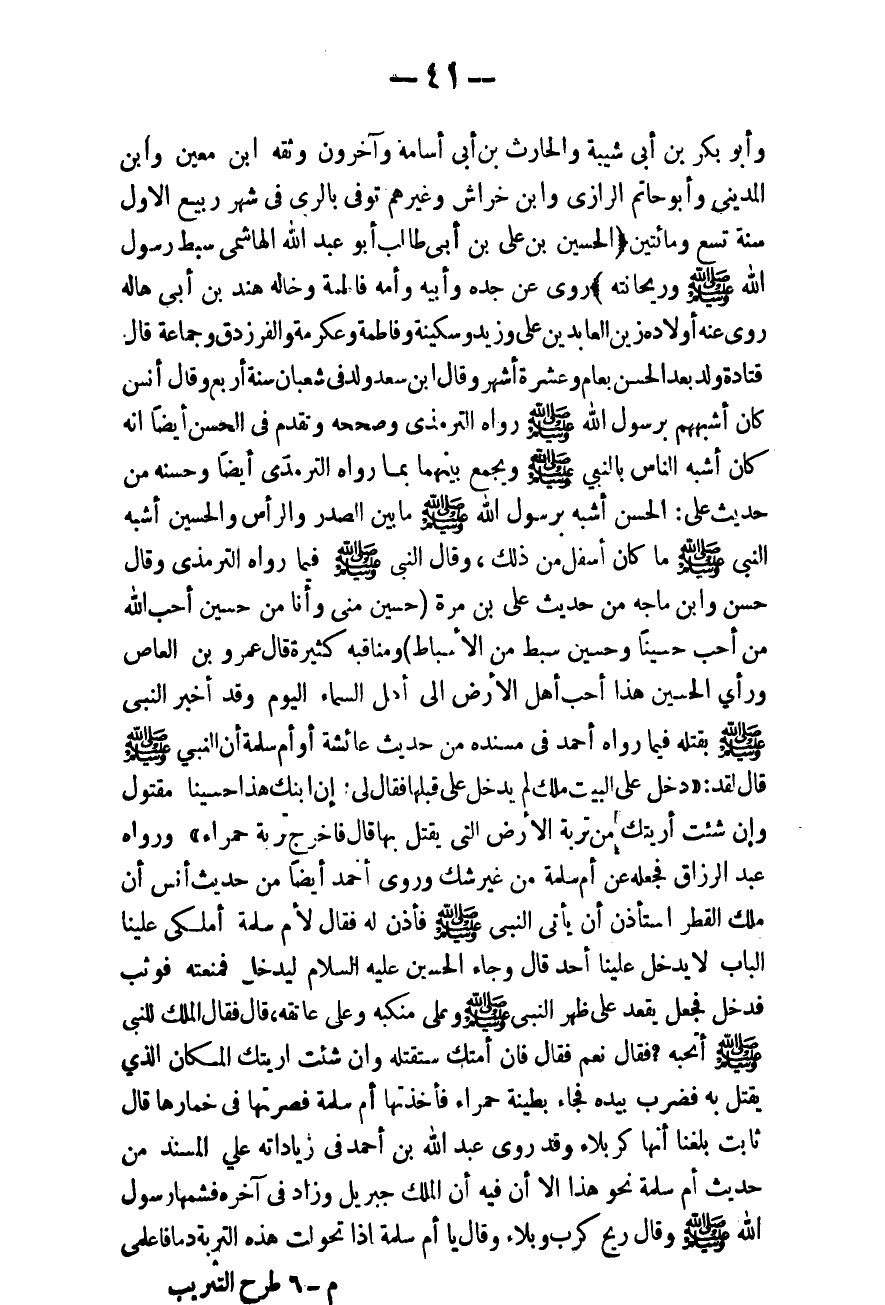 — ٤١ —
وأبو بكر بن أبى شيبة والحارث بن أبى أسامة وآخرون وثقه ابن معين وابن
المديني وأبو حاتم الرازى وابن خراش وغيرهم توفى بالرى فى شهر ربيع الاول
سنة تسع ومائتين ﴿الحسين بن على بن أبى طالب أبو عبد الله الهاشمى سبط رسول
الله ﷺ وريحانته﴾ روى عن جده وأبيه وأمه فاطمة وخاله هند بن أبي هاله
روى عنه أولاده زين العابدين على وزيد وسكينة وفاطمة وعكرمة والفرزدق وجماعة قال
قتادة ولد بعد الحسن بعام وعشرة أشهر وقال ابن سعد ولد فى شعبان سنة أربع وقال أنس
كان أشبههم برسول الله ﷺ رواه الترمذى وصححه وتقدم فى الحسن أيضاً انه
كان أشبه الناس بالنبي ﷺ ويجمع بينهما بما رواه الترمذى أيضاً وحسنه من
حديث على: الحسن أشبه برسول الله ﷺ ما بين الصدر والرأس والحسين أشبه
النبى ﷺ ما كان أسفل من ذلك ، وقال النبى ﷺ فيما رواه الترمذى وقال
حسن وابن ماجه من حديث على بن مرة (حسين منى وأنا من حسين أحب الله
من أحب حسيناً وحسين سبط من الأسباط) ومناقبه كثيرة قال عمرو بن العاص
ورأي الحسين هذا أحب أهل الأرض الى أهل السماء اليوم وقد أخبر النبى
ﷺ بقتله فيما رواه أحمد فى مسنده من حديث عائشة أو أم سلمة أن النبي ﷺ
قال لقد: «دخل على البيت ملك لم يدخل على قبلها فقال لى: إن ابنك هذا حسينا مقتول
وإن شئت أريتك من تربة الأرض التى يقتل بها قال فاخرج تربة حمراء» ورواه
عبد الرزاق فجعله عن أم سلمة من غير شك وروى أحمد أيضاً من حديث أنس أن
ملك القطر استأذن أن يأتى النبى ﷺ فأذن له فقال لأم سلمة أملكى علينا
الباب لا يدخل علينا أحد قال وجاء الحسين عليه السلام ليدخل فمنعته فوثب
فدخل فجعل يقعد على ظهر النبى ﷺ وعلى منكبه وعلى عاتقه، قال فقال الملك للنبى
ﷺ أتحبه ؟ فقال نعم فقال فان أمتك ستقتله وان شئت اريتك المكان الذي
يقتل به فضرب بيده فجاء بطينة حمراء فأخذتها أم سلمة فصرتها فى خمارها قال
ثابت بلغنا أنها كربلاء وقد روى عبد الله بن أحمد فى زياداته علي المسند من
حديث أم سلمة نحو هذا الا أن فيه أن الملك جبريل وزاد فى آخره فشمها رسول
الله ﷺ وقال ريح كرب وبلاء وقال يا أم سلمة اذا تحولت هذه التربة دما فاعلمى
م – ٦ طرح التثريب